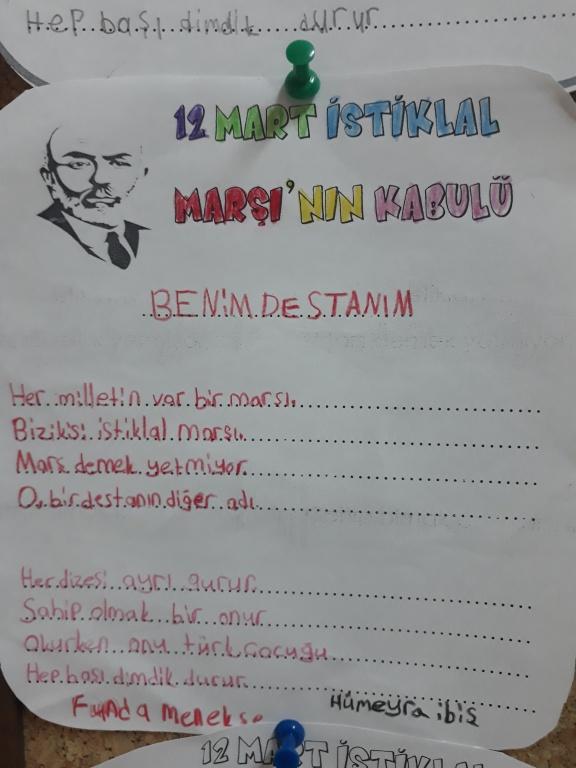 Hep başı dimdik durur
12 MART İSTİKLAL
MARŞI'NIN KABULÜ
BENİM DESTANIM
Her milletin var bir marsı.
Bizikisi istiklal marşı.
Marş demek yetmiyor.
O, bir destanın diğer adı.
Her dizesi ayrı gurur
Sahip olmak bir onur
Okurken onu türk çocuğu
Hep başı dimdik durur
Funda menekşe
Hümeyra ibiş
12 MART İSTİKLAL